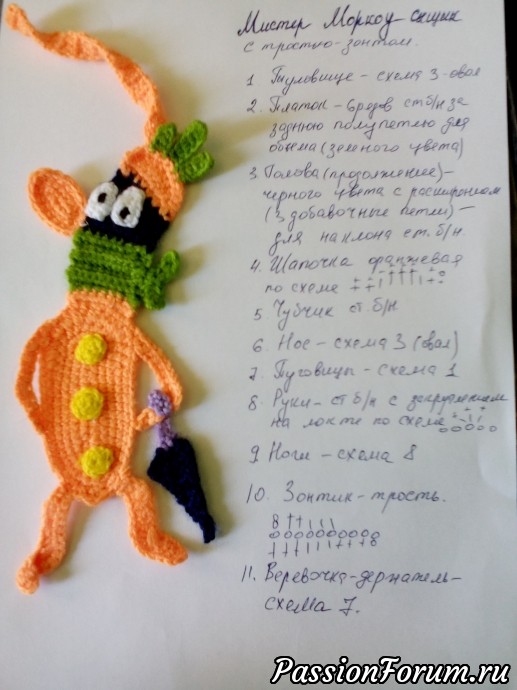 Мистер Моркоу - сыщик
с тростью-зонтом.
1 Туловище - схема 3-овал
2. Платок - 6 рядов ст.б/н за
заднюю полупетлю для
объёма (зеленого цвета)
3. Голова (продолжение) -
черного цвета с расширением
(3 добавочные петли) -
для наклона ст. б/н.
4. Шапочка оранжевая
по схеме
5 Чубчик ст б/н
6. Нос - схема 3 (овал)
7. Пуговицы - схема 1
8 Руки - ст б/н с закруглением
на локте по схеме
9 Ноги - схема 8
10. Зонтик - трость.
11. Веревочка-держатель-
схема 7.
PassionForum.ru